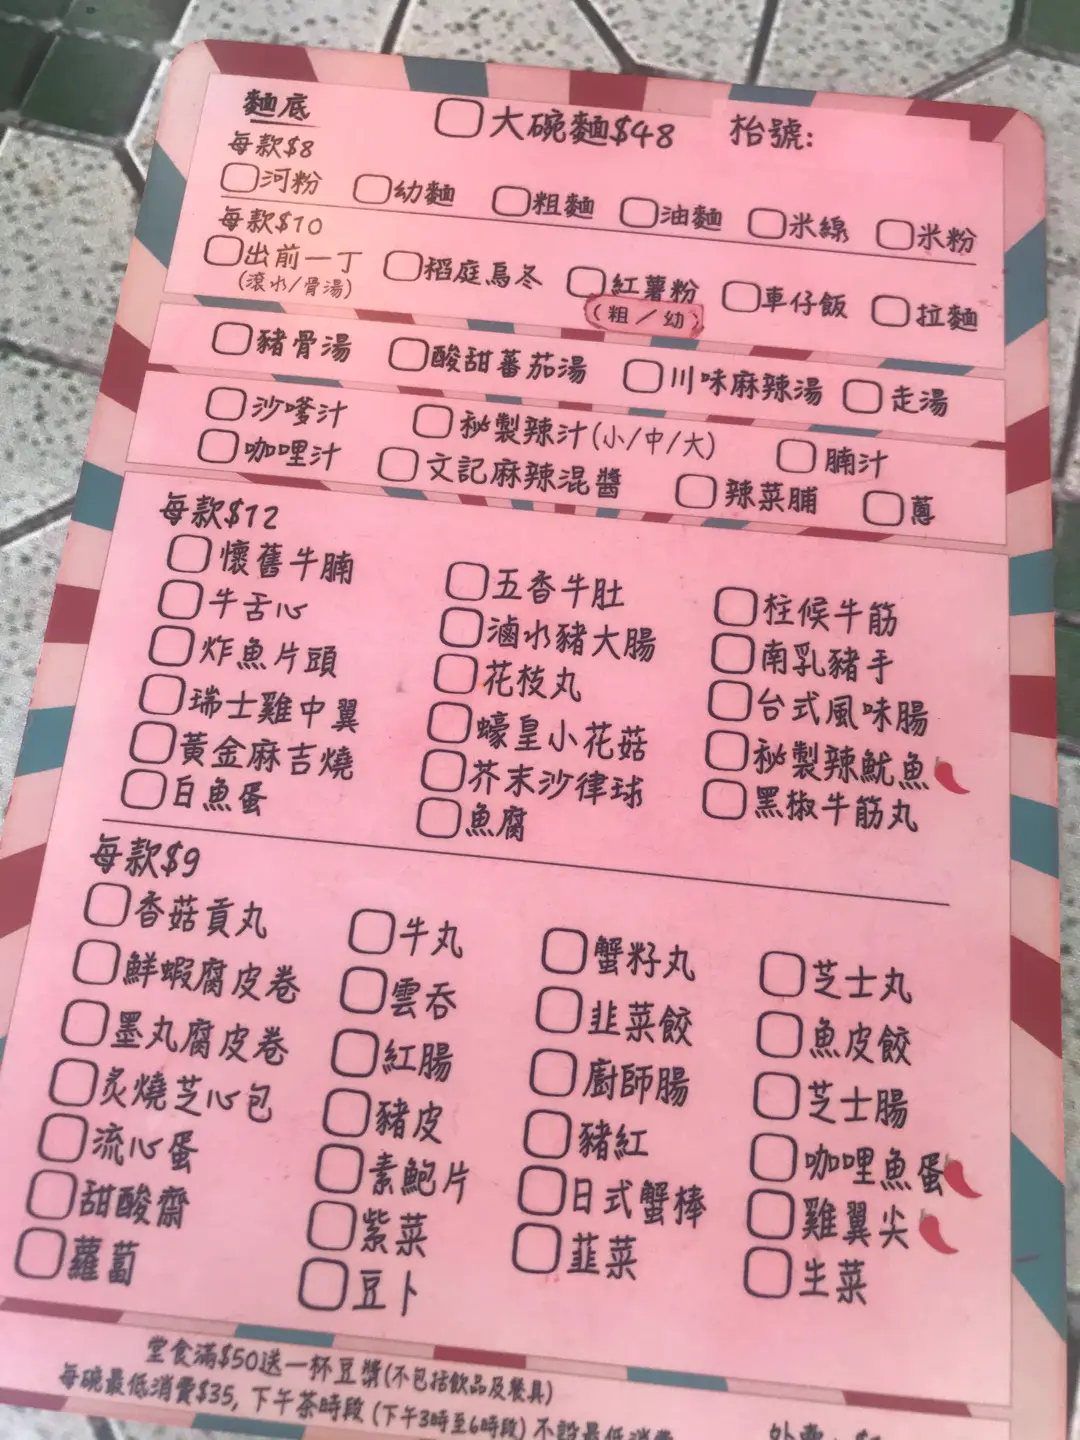 麵底
大碗麵$48
枱號:
每款$8
河粉 幼麵 粗麵 油麵 米線 米粉
每款$10
出前一丁 稻庭烏冬 紅薯粉 車仔飯 拉麵
(滾水/骨湯) (粗/幼)
豬骨湯 酸甜蕃茄湯 川味麻辣湯 走湯
沙嗲汁 秘製辣汁(小/中/大) 腩汁
咖哩汁 文記麻辣混醬 辣菜脯 蔥
每款$12
懷舊牛腩 五香牛肚 柱候牛筋
牛舌心 滷水豬大腸 南乳豬手
炸魚片頭 花枝丸 台式風味腸
瑞士雞中翼 蠔皇小花菇 秘製辣魷魚
黃金麻吉燒 芥末沙律球 黑椒牛筋丸
白魚蛋 魚腐
每款$9
香菇貢丸 牛丸 蟹籽丸 芝士丸
鮮蝦腐皮卷 雲吞 韭菜餃 魚皮餃
墨丸腐皮卷 紅腸 廚師腸 芝士腸
炙燒芝心包 豬皮 豬紅 咖哩魚蛋
流心蛋 素鮑片 日式蟹棒 雞翼尖
甜酸齋 紫菜 韭菜 生菜
蘿蔔 豆卜
堂食滿$50送一杯豆漿(不包括飲品及餐具)
每碗最低消費$35, 下午茶時段 (下午3時至6時段) 不設最低消費